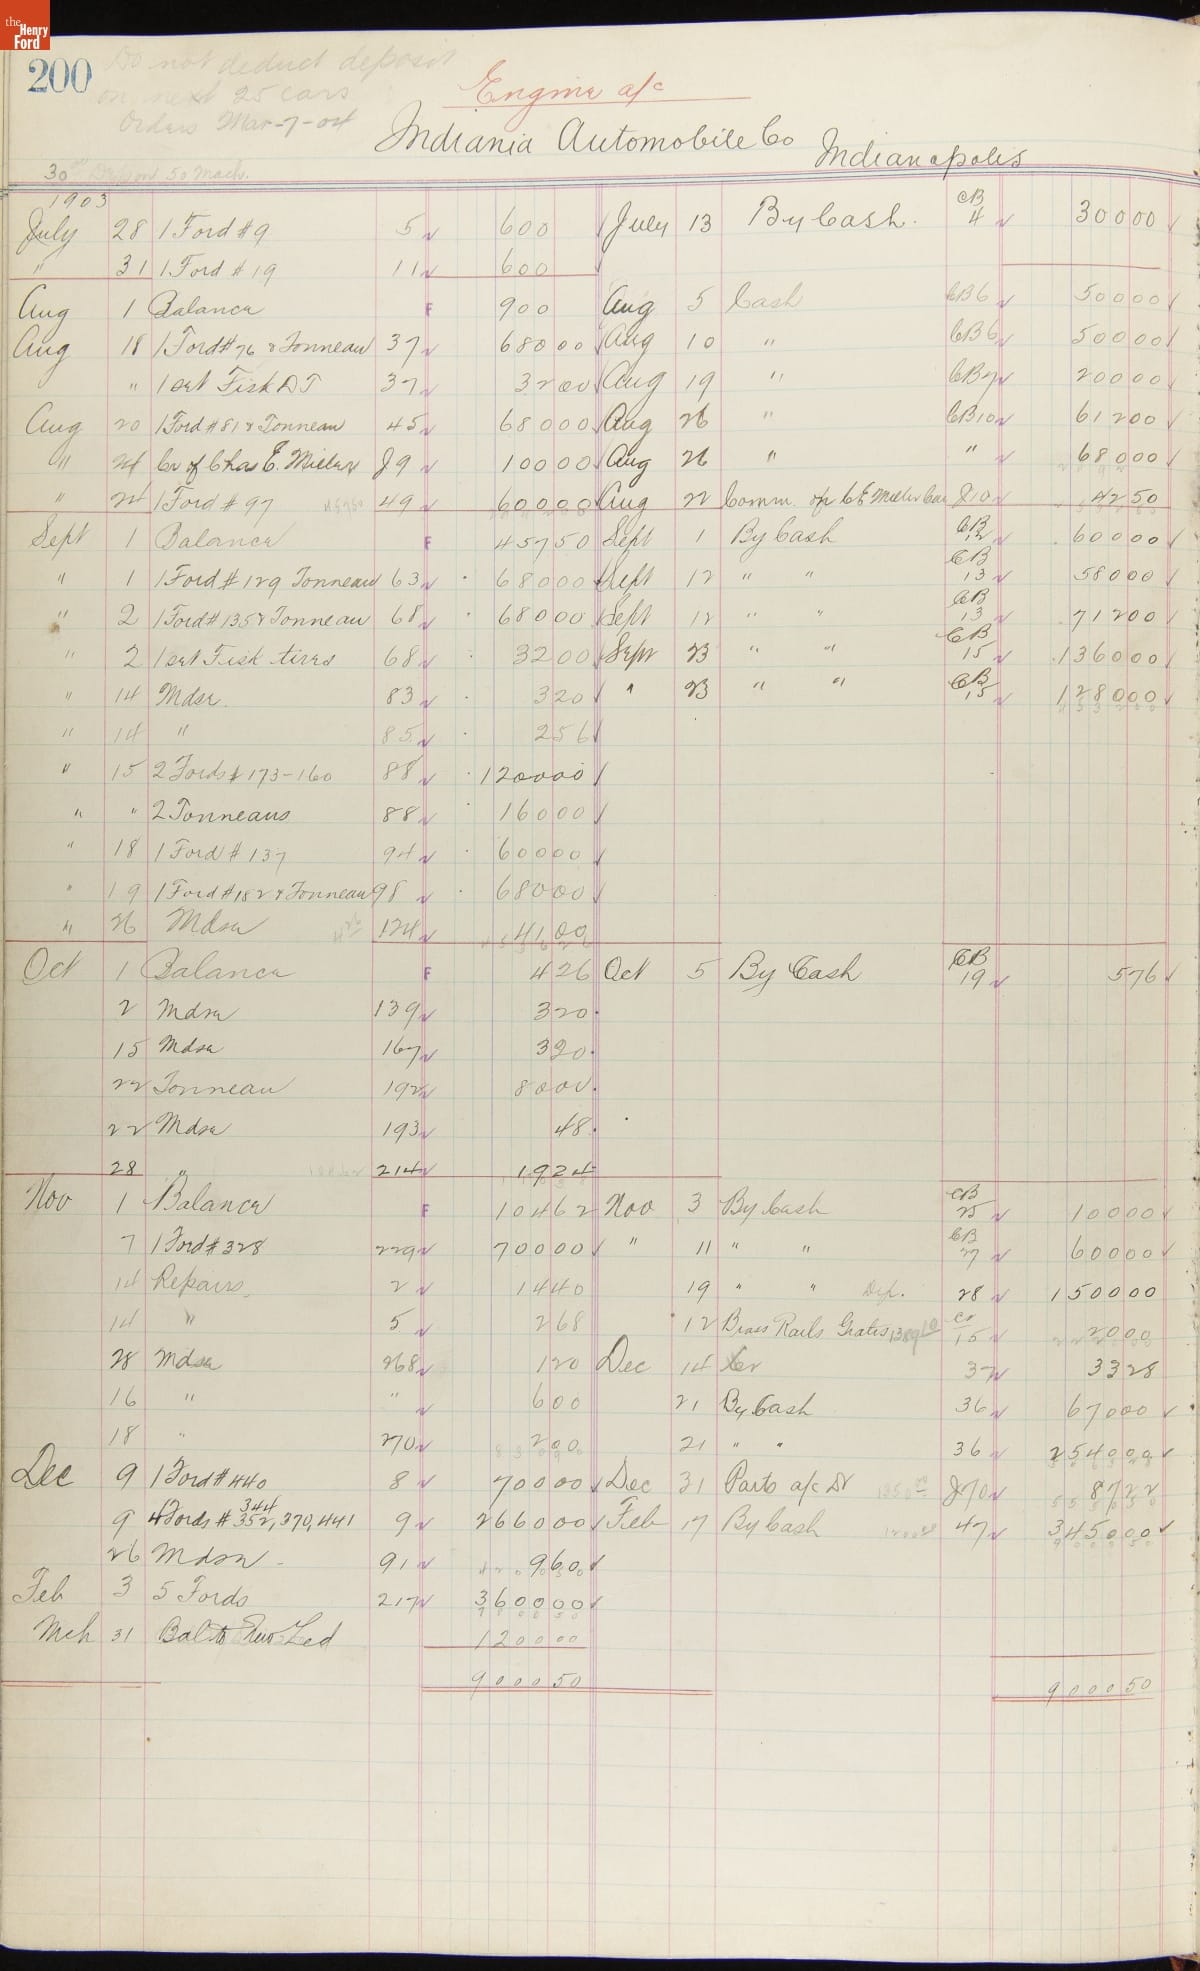 the Henry Ford
200
Do not deduct deposit
on next 25 cars
Orders Mar-7-04
Engine a/c
Indiania Automobile Co Indianapolis
30
50 Mach.
1903
July 28 1 Ford #9 5 600 July 13 By Cash. CB 4 30000
" 31 1 Ford #19 11 600
Aug 1 Balance F 900 Aug 5 Cash CB6 50000
Aug 18 1 Ford #76 & Tonneau 37 68000 Aug 10 " CB6 50000
" 1 set Fisk D T 37 3200 Aug 19 " CB7 20000
Aug 20 1 Ford #81 & Tonneau 45 68000 Aug 26 " CB10 61200
" 24 Cr of Chas E. Miller J9 10000 Aug 26 " " 68000
" 24 1 Ford #97 45750 49 60000 Aug 22 Comm. op C E Miller Car J10 4250
Sept 1 Balance F 45750 Sept 1 By Cash CB 12 60000
" 1 1 Ford #129 Tonneau 63 68000 Sept 12 " " CB 13 58000
" 2 1 Ford #135 & Tonneau 68 68000 Sept 12 " " CB 13 71200
" 2 1 set Fisk tires 68 3200 Sept 23 " " CB 15 136000
" 14 Mdse. 83 320 " 23 " " CB 15 128000
" 14 " 85 256
" 15 2 Fords # 173-160 88 120000
" " 2 Tonneaus 88 16000
" 18 1 Ford #137 94 60000
" 19 1 Ford #182 & Tonneau 98 68000
" 26 Mdse 124 4100
Oct 1 Balance F 426 Oct 5 By Cash CB 19 576
2 Mdse 139 320
15 Mdse 167 320
22 Tonneau 192 8000
22 Mdse 193 48
28 " 214 1924
Nov 1 Balance F 10462 Nov 3 By Cash CB 25 10000
7 1 Ford #328 229 70000 " 11 " " CB 27 60000
14 Repairs. 2 1440 19 " " Dep. 28 150000
14 " 5 268 12 Brass Rails Grates 15 2000
28 Mdse 268 120 Dec 14 Cr 37 3328
16 " " 600 21 By Cash 36 67000
18 " 270 200 21 " " 36 254000
Dec 9 1 Ford #440 8 70000 Dec 31 Parts a/c Dr J70 8722
9 4 Fords # 344 352, 370, 441 9 266000 Feb 17 By Cash 47 345000
26 Mdse 91 960
Feb 3 5 Fords 217 360000
Mch 31 Bal to New Led 120000
900050 900050